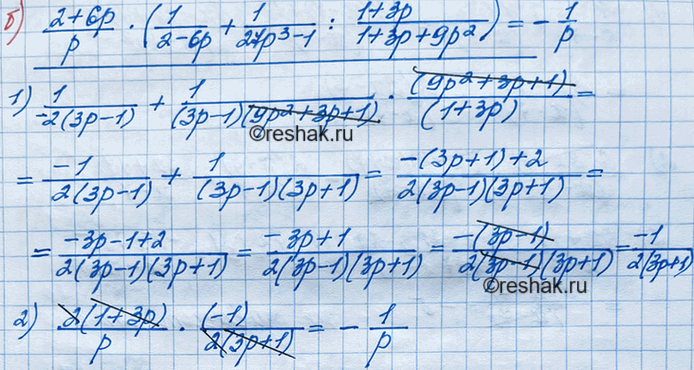 б) (2+6p)/p · (1/(2-6p) + 1/(27p³-1) : (1+3p)/(1+3p+9p²)) = -1/p
1) 1/(-2(3p-1)) + 1/((3p-1)(9p²+3p+1)) · (9p²+3p+1)/(1+3p) =
©reshak.ru
= -1/(2(3p-1)) + 1/((3p-1)(3p+1)) = (-(3p+1)+2)/(2(3p-1)(3p+1)) =
= (-3p-1+2)/(2(3p-1)(3p+1)) = (-3p+1)/(2(3p-1)(3p+1)) = -(3p-1)/(2(3p-1)(3p+1)) = -1/(2(3p+1))
©reshak.ru
2) 2(1+3p)/p · (-1)/(2(3p+1)) = -1/p